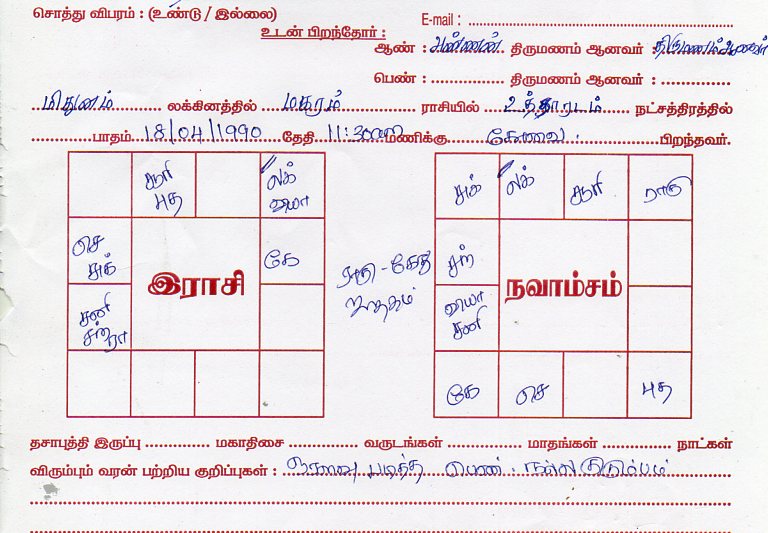 சொத்து விபரம் : (உண்டு / இல்லை)
உடன் பிறந்தோர் :
E-mail :
ஆண் : அண்ணன் திருமணம் ஆனவர் : திருமணம் ஆனவர்
பெண் : திருமணம் ஆனவர் :
மிதுனம் லக்கினத்தில் மகரம் ராசியில் உத்தராடம் நட்சத்திரத்தில்
பாதம் 18/04/1990 தேதி 11:30 மணிக்கு கோவை பிறந்தவர்.
சூரி லக்
புத வியா
செ
சுக்
கே
சனி
சந்ரா
இராசி
ராகு - கேது
ஜாதகம்
சுக் லக் சூரி ராகு
சந்
வியா
சனி
நவாம்சம்
கே செ புத
தசாபுத்தி இருப்பு மகாதிசை வருடங்கள் மாதங்கள் நாட்கள்
விரும்பும் வரன் பற்றிய குறிப்புகள் : படித்த பெண். நல்ல குடும்பம்